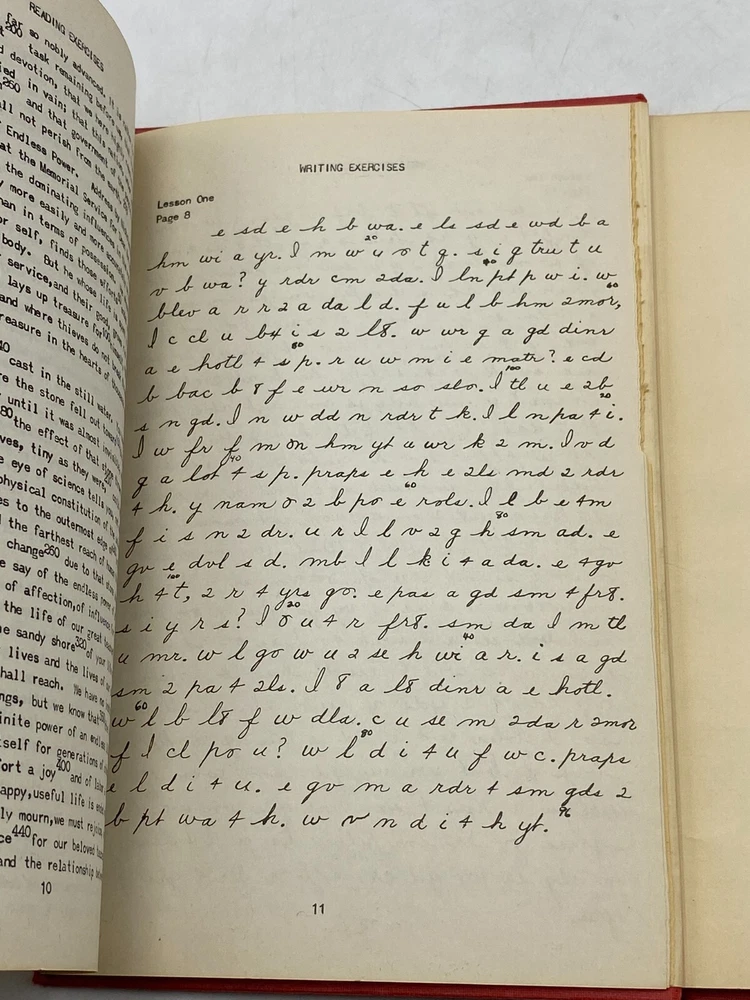 READING EXERCISES
far so nobly advanced. It
200 task remaining before
devotion, that we
in vain; that this
260 and that government of
not perish from the
Endless Power. Address
at the Memorial Service
the dominating influence
more easily and more
than in terms of possession
or self, finds those
body. But he whose life is
service, and their good
lays up treasure for
and where thieves do not
treasure in the hearts of
cast in the still water.
the stone fell out
until it was almost
80 the effect of that
tiny as they were
eye of science tells
physical constitution of the
to the outermost edge
the farthest reach of
change 260 due to that
say of the endless power
of affection, of influence
the life of our great
sandy shore 320 of your
lives and the lives of
shall reach. We have no
but we know that
infinite power of an endless
itself for generations of
a joy 400 and of
happy, useful life is
mourn, we must rejoice
440 for our beloved
and the relationship
10
WRITING EXERCISES
Lesson One
Page 8
e sd e h b wa. e ls sd e wd b a
hm wi a yr. I m w u o t g. s i g tru t u
v b wa? y rdr cm 2da. I ln pt p w i. w
blev a r r 2 a da l d. f u l b hm 2mor,
I c cl u b4 i s 2 l8. w wr g a gd dinr
a e hotl 4 s p. r u w m i e matr? e cd
b bac b 8 f e wr n so slo. I tl u e 2b
s n gd. I n w dd n rdr t k. I l n pa 4 i.
I w fr f m on hm yt u wr k 2 m. I v d
g a lot 4 s p. praps e h e 2ls md 2 rdr
4 h. y nam o 2 b po e rols. I l b e 4m
f i s n 2 dr. u r I l v 2 g h sm ad. e
gv e dvl s d. mb I l k i 4 a da. e 4gv
h 4t, 2 r 4 yrs go. e pas a gd sm 4 fr8.
s i y r s? I o u 4 r fr8. sm da I m tl
u mr. w l go w u 2 se h wi a r. i s a gd
sm 2 pa 4 2ls. I 8 a l8 dinr a e hotl.
w l b l8 f w dla. c u se m 2da r 2mor
f I cl po u? w l d i 4 u f w c. praps
e l d i 4 u. e gv m a rdr 4 sm gds 2
b pt wa 4 h. w v n d i 4 h yt. 96
11